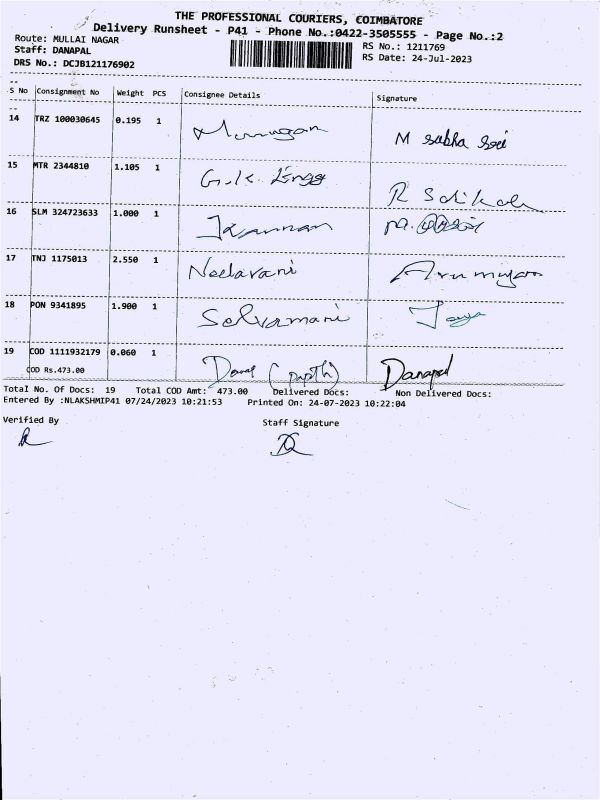 THE PROFESSIONAL COURIERS, COIMBATORE
Delivery Runsheet - P41 - Phone No.:0422-3505555 - Page No.:2
Route: MULLAI NAGAR
RS No.: 1211769
Staff: DANAPAL
RS Date: 24-Jul-2023
DRS No.: DCJB121176902
S No Consignment No Weight PCS Consignee Details Signature
14 TRZ 100030645 0.195 1 Murugan M Subha Sri
15 MTR 2344810 1.105 1 G.K. Engg R
16 SLM 324723633 1.000 1 Kannan
17 TNJ 1175013 2.550 1 Neelavani Arumugam
18 PON 9341895 1.900 1 Selvamani Jaya
19 COD 1111932179 0.060 1 Danapal
COD Rs.473.00
Total No. Of Docs: 19 Total COD Amt: 473.00 Delivered Docs: Non Delivered Docs:
Entered By :NLAKSHMIP41 07/24/2023 10:21:53 Printed On: 24-07-2023 10:22:04
Verified By Staff Signature